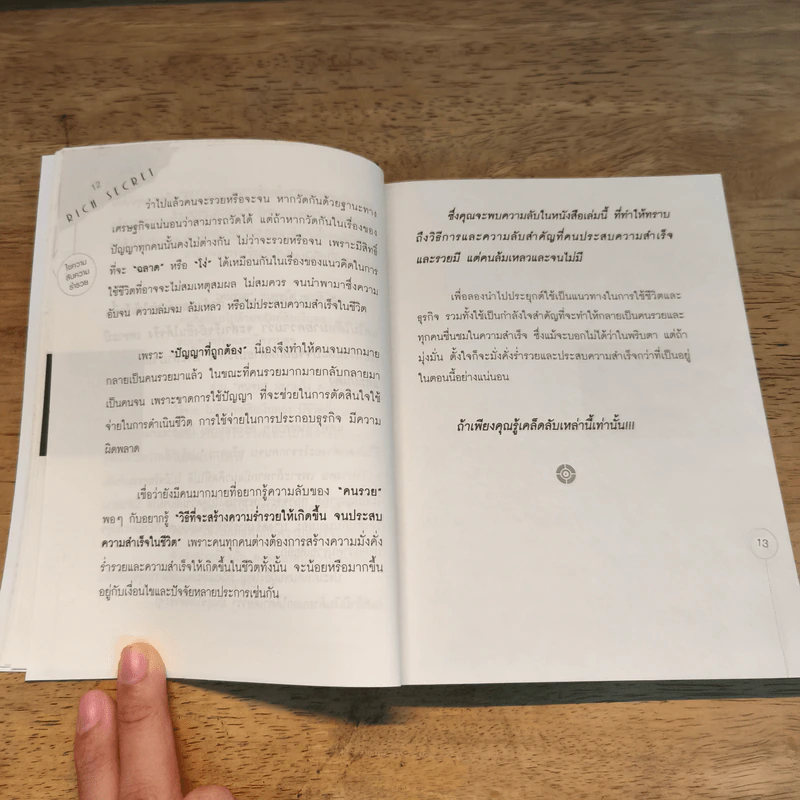 12
RICH SECRET
ไขความ
ลับความ
ร่ำรวย
ว่าไปแล้วคนจะรวยหรือจะจน หากวัดกันด้วยฐานะทาง
เศรษฐกิจแน่นอนว่าสามารถวัดได้ แต่ถ้าหากวัดกันในเรื่องของ
ปัญญาทุกคนนั้นคงไม่ต่างกัน ไม่ว่าจะรวยหรือจน เพราะมีสิทธิ์
ที่จะ "ฉลาด" หรือ "โง่" ได้เหมือนกันในเรื่องของแนวคิดในการ
ใช้ชีวิตที่อาจจะไม่สมเหตุสมผล ไม่สมควร จนนำพามาซึ่งความ
อับจน ความล่มจม ล้มเหลว หรือไม่ประสบความสำเร็จในชีวิต
เพราะ "ปัญญาที่ถูกต้อง" นี่เองจึงทำให้คนจนมากมาย
กลายเป็นคนรวยมาแล้ว ในขณะที่คนรวยมากมายกลับกลายมา
เป็นคนจน เพราะขาดการใช้ปัญญา ที่จะช่วยในการตัดสินใจใช้
จ่ายในการดำเนินชีวิต การใช้จ่ายในการประกอบธุรกิจ มีความ
ผิดพลาด
เชื่อว่ายังมีคนมากมายที่อยากรู้ความลับของ "คนรวย"
พอๆ กับอยากรู้ "วิธีที่จะสร้างความร่ำรวยให้เกิดขึ้น จนประสบ
ความสำเร็จในชีวิต" เพราะคนทุกคนต่างต้องการสร้างความมั่งคั่ง
ร่ำรวยและความสำเร็จให้เกิดขึ้นในชีวิตทั้งนั้น จะน้อยหรือมากขึ้น
อยู่กับเงื่อนไขและปัจจัยหลายประการเช่นกัน
ซึ่งคุณจะพบความลับในหนังสือเล่มนี้ ที่ทำให้ทราบ
ถึงวิธีการและความลับสำคัญที่คนประสบความสำเร็จ
และรวยมี แต่คนล้มเหลวและจนไม่มี
เพื่อลองนำไปประยุกต์ใช้เป็นแนวทางในการใช้ชีวิตและ
ธุรกิจ รวมทั้งใช้เป็นกำลังใจสำคัญที่จะทำให้กลายเป็นคนรวยและ
ทุกคนชื่นชมในความสำเร็จ ซึ่งแม้จะบอกไม่ได้ว่าในพริบตา แต่ถ้า
มุ่งมั่น ตั้งใจก็จะมั่งคั่งร่ำรวยและประสบความสำเร็จกว่าที่เป็นอยู่
ในตอนนี้อย่างแน่นอน
ถ้าเพียงคุณรู้เคล็ดลับเหล่านี้เท่านั้น!!!
13